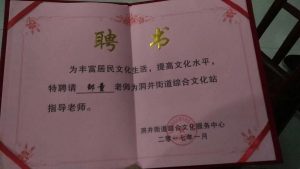 聘 书
为丰富居民文化生活，提高文化水平，
特聘请 老师为洞井街道综合文化站
指导老师。
洞井街道综合文化服务中心
二零一七年一月